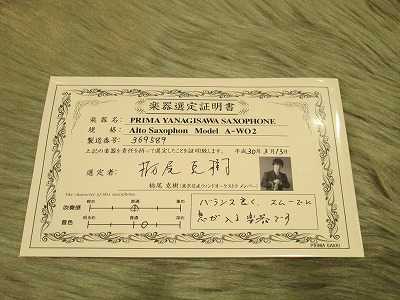 楽器選定証明書
楽器名: PRIMA YANAGISAWA SAXOPHONE
規格: Alto Saxophon Model A-WO2
製造番号: 369589
上記の楽器を責任を持って選定したことを証明致します。 平成30年3月13日
選定者: 栃尾克樹
栃尾 克樹 (東京佼成ウインドオーケストラ メンバー)
The character of this saxophone.
軽め 普通 重め
吹奏感
明るめ 普通 深め
音色
バランス良く、スムーズに
息が入る楽器です
PRIMA GAKKI